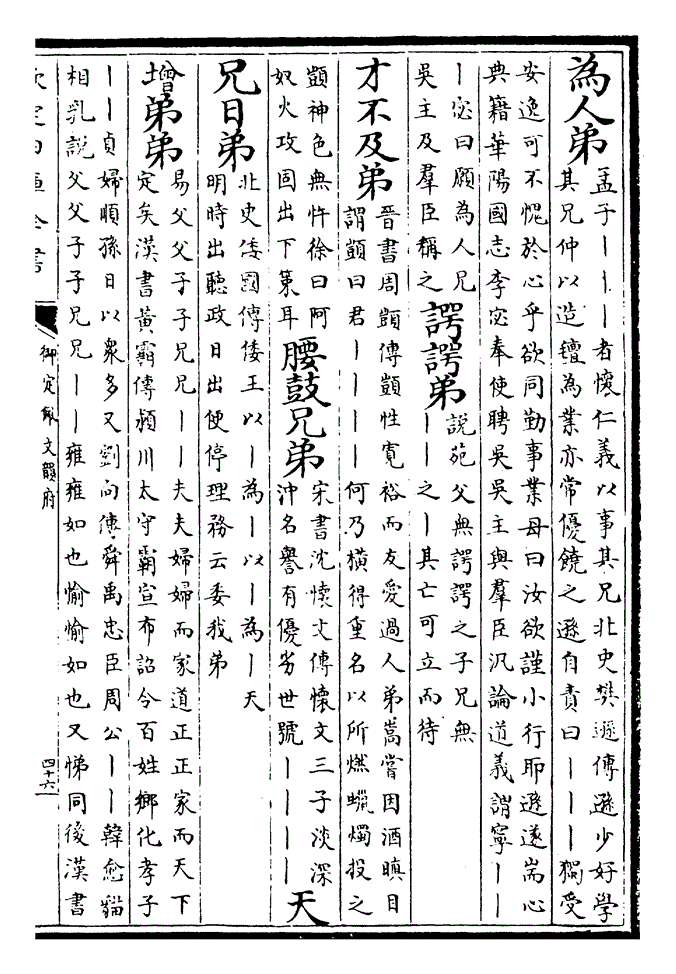 為人弟
孟子｜｜｜者懷仁義以事其兄北史樊遜傳遜少好學
其兄仲以造氊為業亦常優饒之遜自責曰｜｜｜獨受
安逸可不愧於心乎欲同勤事業母曰汝欲謹小行耶遜遂耑心
典籍華陽國志李宓奉使聘吳吳主與羣臣汎論道義謂寧｜｜
｜宓曰願為人兄
吳主及羣臣稱之
諤諤弟
說苑父無諤諤之子兄無
｜｜之｜其亡可立而待
才不及弟
晉書周顗傳顗性寛裕而友愛過人弟嵩嘗因酒瞋目
謂顗曰君｜｜｜｜何乃橫得重名以所燃蠟燭投之
顗神色無忤徐曰阿
奴火攻固出下策耳
腰鼓兄弟
宋書沈懷文傳懷文三子淡深
沖名譽有優劣世號｜｜｜｜
天
兄日弟
北史倭國傳倭王以｜為｜以｜為｜天
明時出聽政日出便停理務云委我弟
增弟弟
易父父子子兄兄｜｜夫夫婦婦而家道正正家而天下
定矣漢書黃霸傳潁川太守霸宣布詔令百姓鄉化孝子
｜｜貞婦順孫日以衆多又劉向傳舜禹忠臣周公｜｜韓愈貓
相乳說父父子子兄兄｜｜雍雍如也愉愉如也又悌同後漢書
欽定四庫全書
御定佩文韻府
四十六